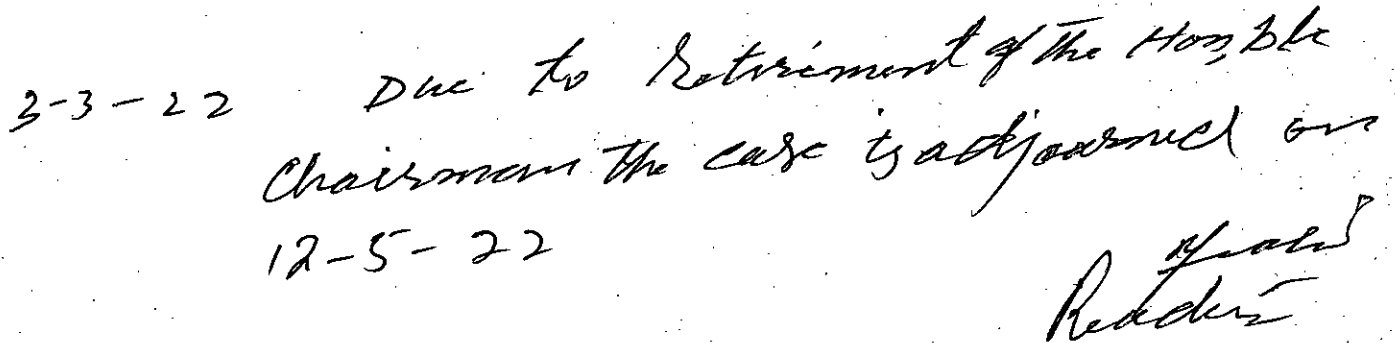 3-3-22 Due to Retirement of the Hon,ble
Chairman the case is adjourned on
12-5-22
Reader